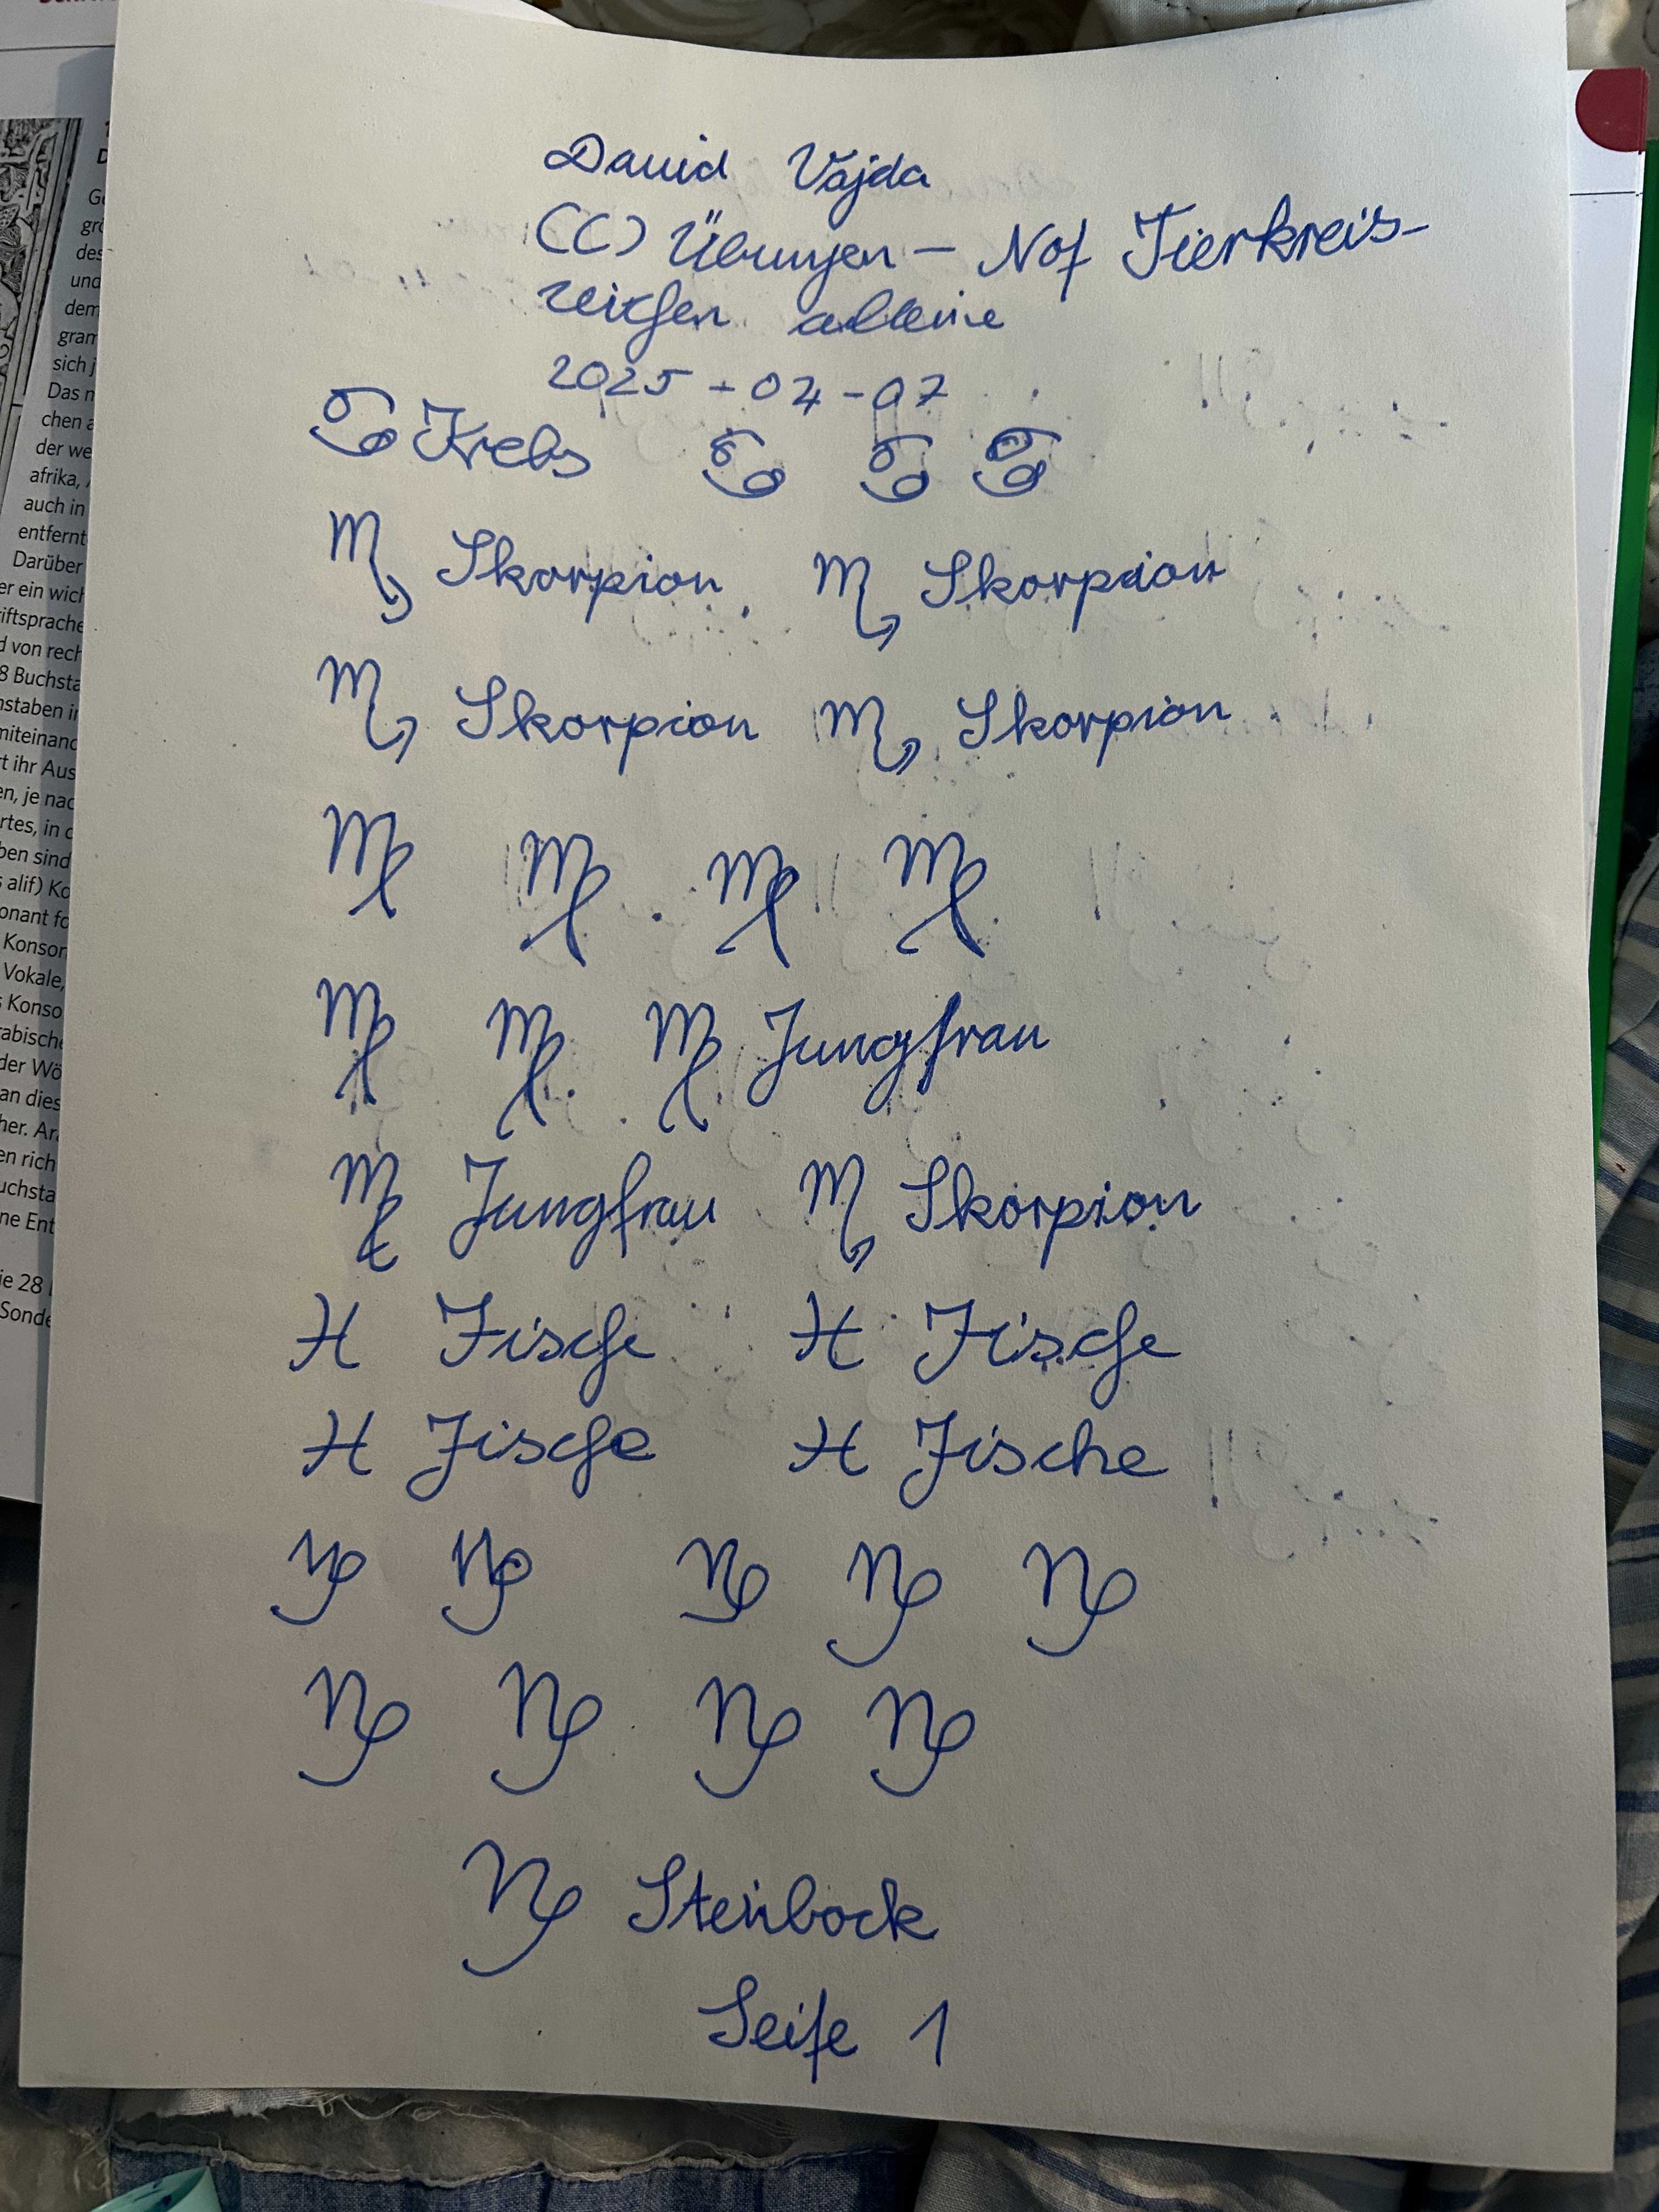 David Vajda
(C) Übungen – Not Tierkreis-
zeichen alleine
2025-07-07
♋ Krebs ♋ ♋ ♋
♏ Skorpion ♏ Skorpion
♏ Skorpion ♏ Skorpion
♍ ♍ ♍ ♍
♍ ♍ ♍ Jungfrau
♍ Jungfrau ♏ Skorpion
♓ Fische ♓ Fische
♓ Fische ♓ Fische
♑ ♑ ♑ ♑ ♑
♑ ♑ ♑ ♑
♑ Steinbock
Seite 1
des
und
dem
gram
sich j
Das n
chen a
der we
afrika,
auch in
entfernt
Darüber
er ein wich
riftsprache
d von rech
8 Buchsta
nstaben in
miteinand
t ihr Aus
en, je nac
rtes, in d
ben sind
s alif) Ko
onant fo
Konson
Vokale,
s Konso
rabische
der Wö
an dies
her. Ar
en rich
uchsta
ne Ent
ie 28
Sonde